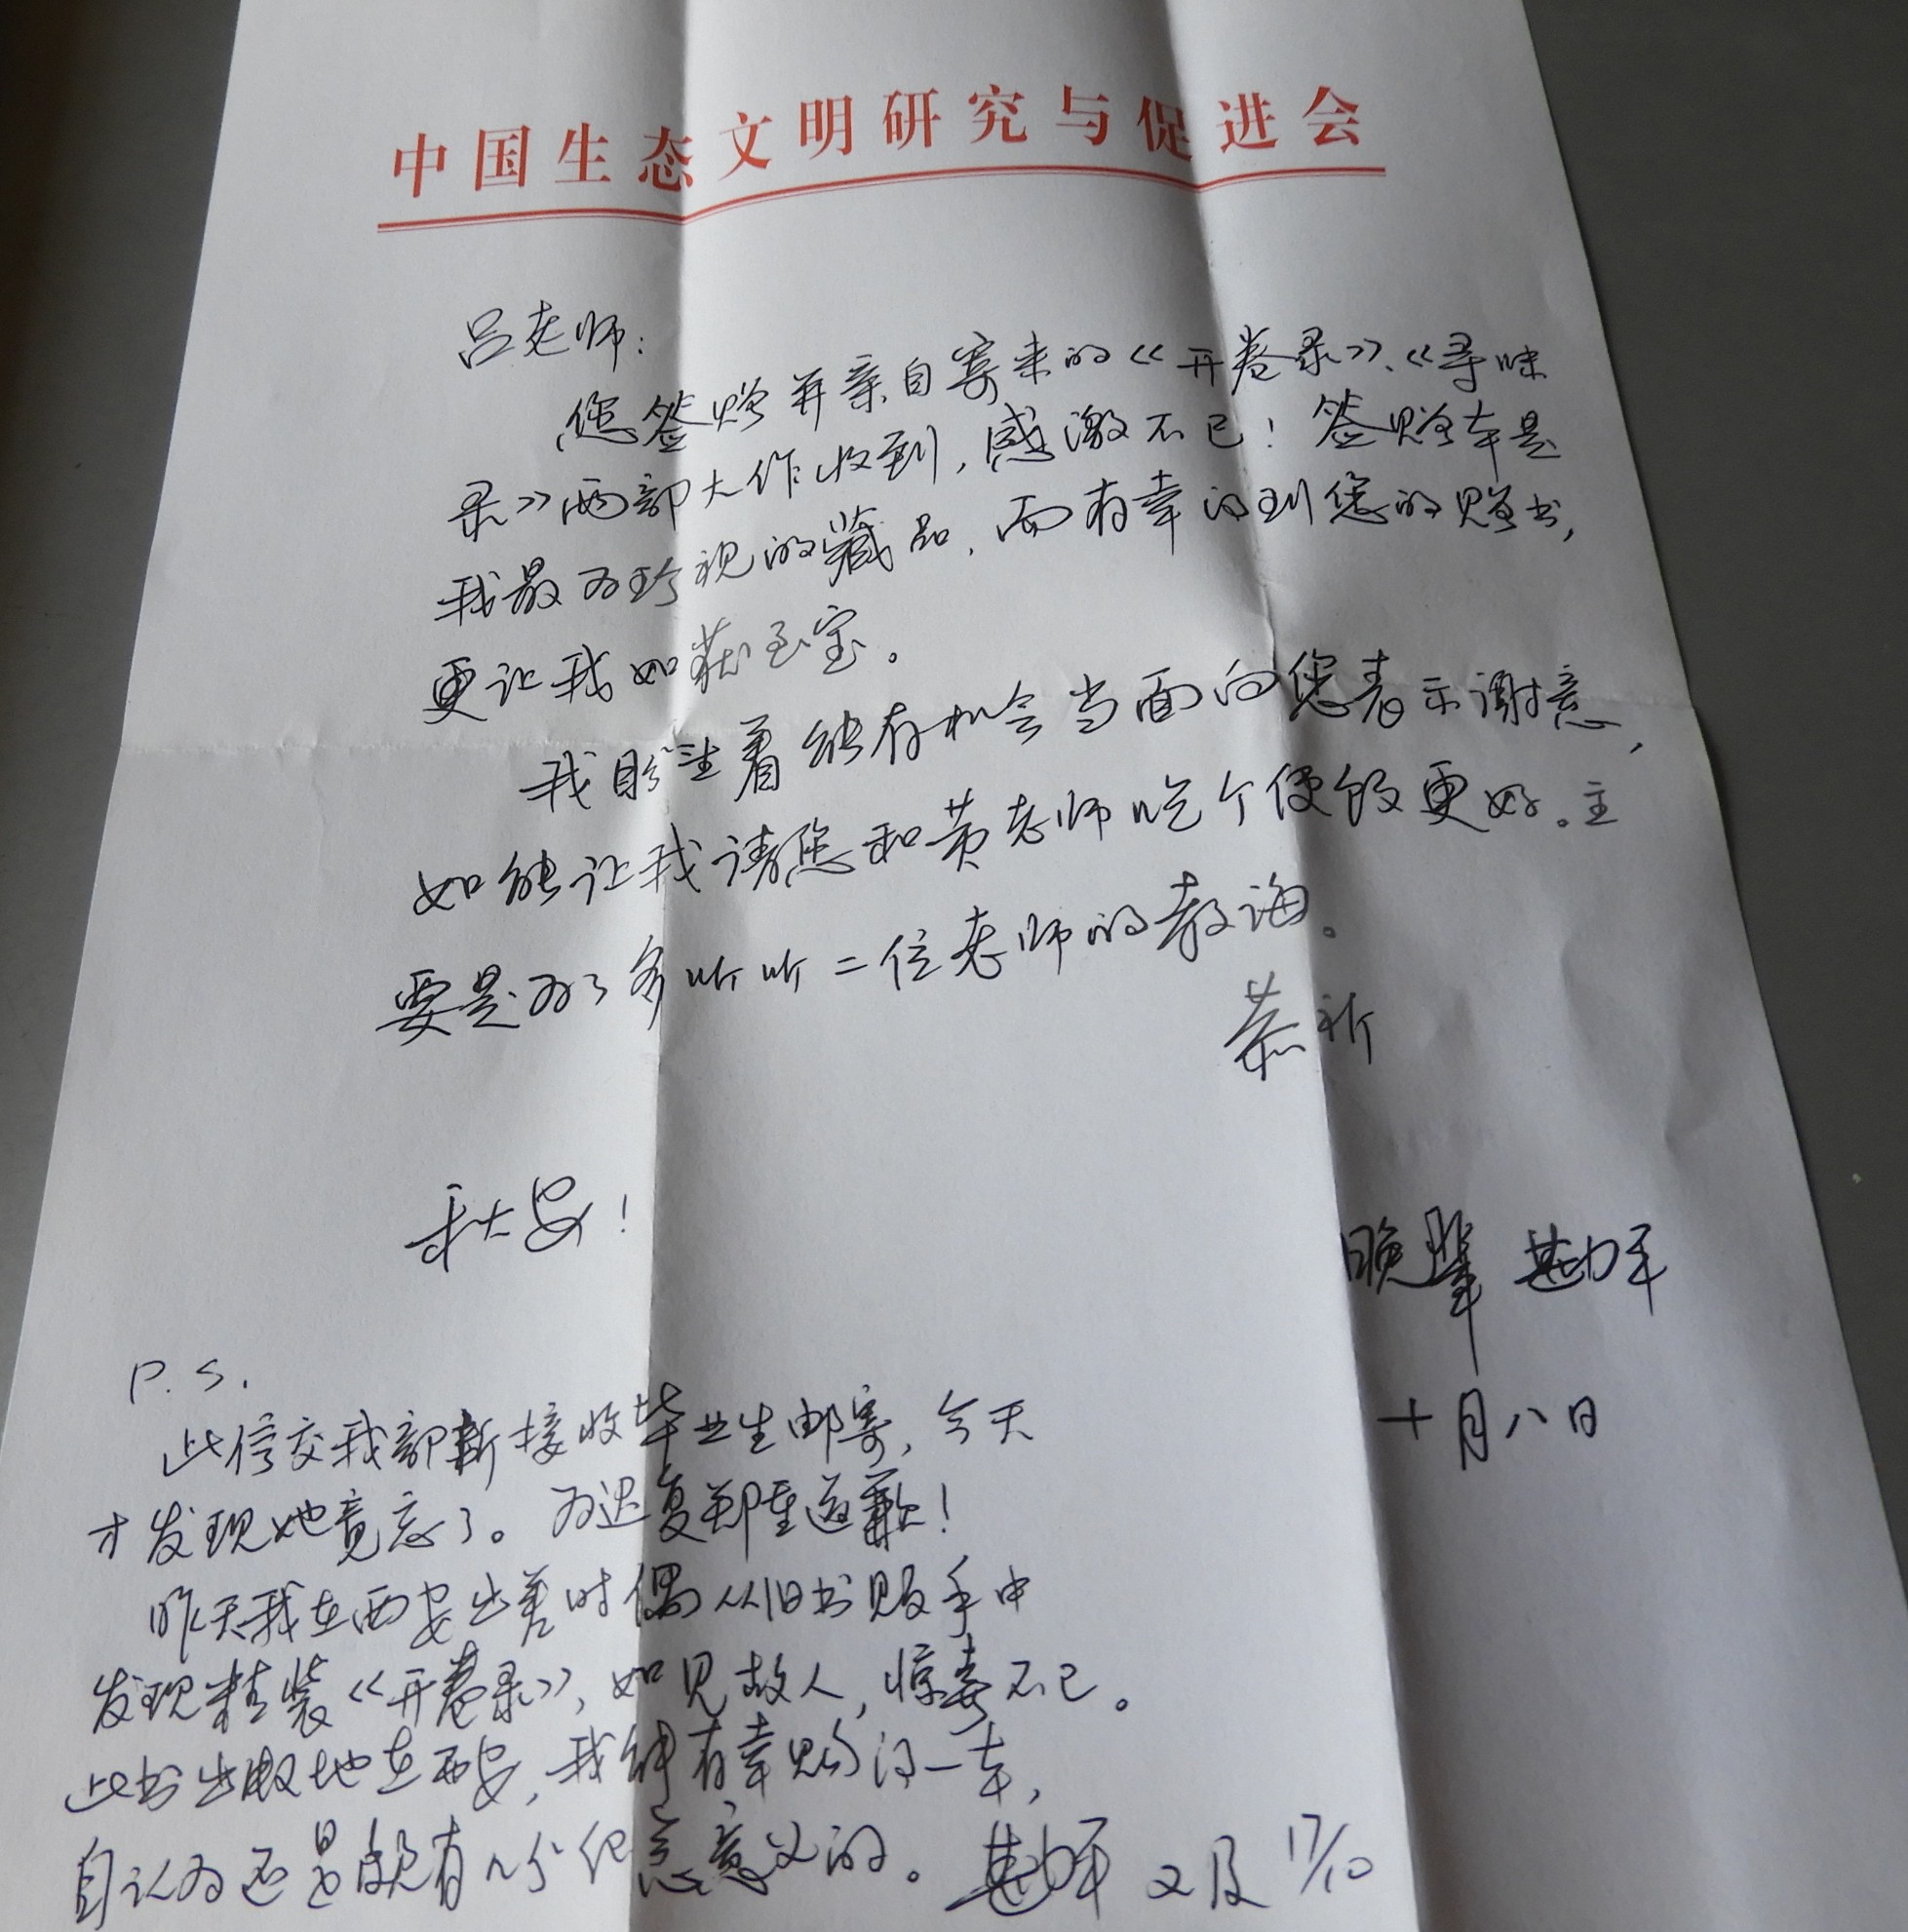 中国生态文明研究与促进会
吕老师:
您签赠并亲自寄来的《开卷录》、《寻味
录》两部大作收到,感激不已!签赠本是
我最为珍视的藏品,而有幸得到您的赠书,
更让我如获至宝。
我盼望着能有机会当面向您表示谢意,
如能让我请您和黄老师吃个便饭更好。主
要是为了多听听二位老师的教诲。
恭祈
秋安!
晚辈
十月八日
P.S.
此信交我部新接收毕业生邮寄,今天
才发现她竟忘了。为迟复郑重道歉!
昨天我在西安出差时偶从旧书贩手中
发现精装《开卷录》,如见故人,惊喜不已。
此书出版地在西安,我能有幸购得一本,
自认为还是颇有几分纪念意义的。 又及 17/10